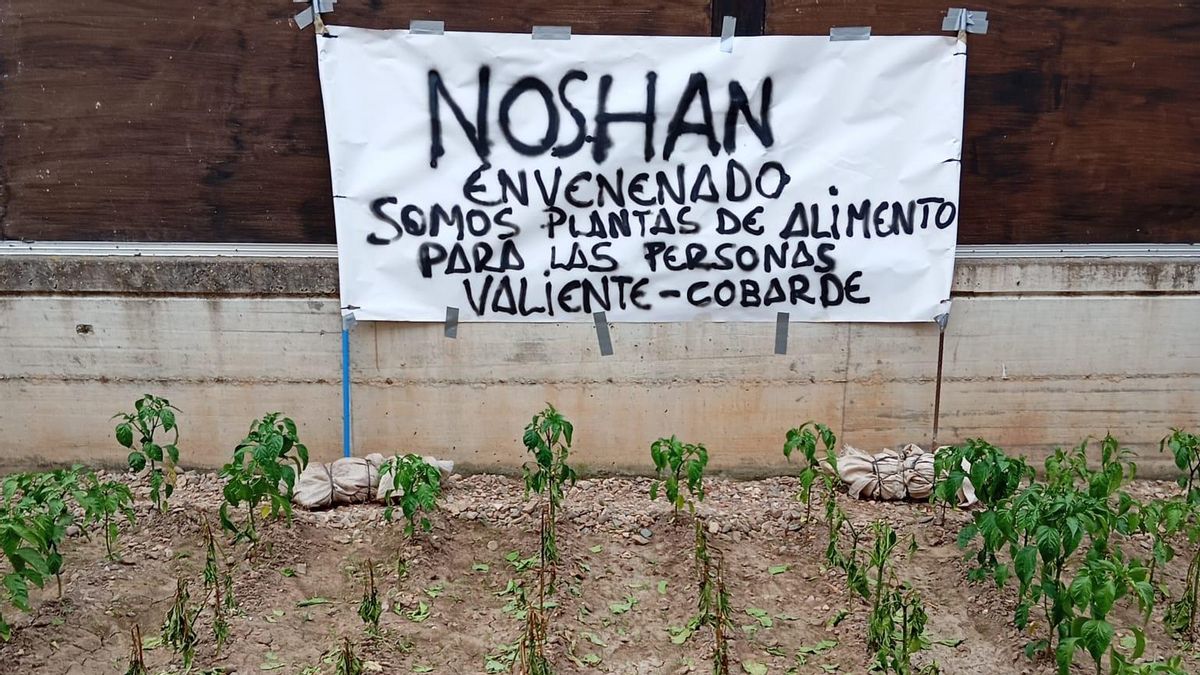 NOSHAN
ENVENENADO
SOMOS PLANTAS DE ALIMENTO
PARA LAS PERSONAS
VALIENTE-COBARDE